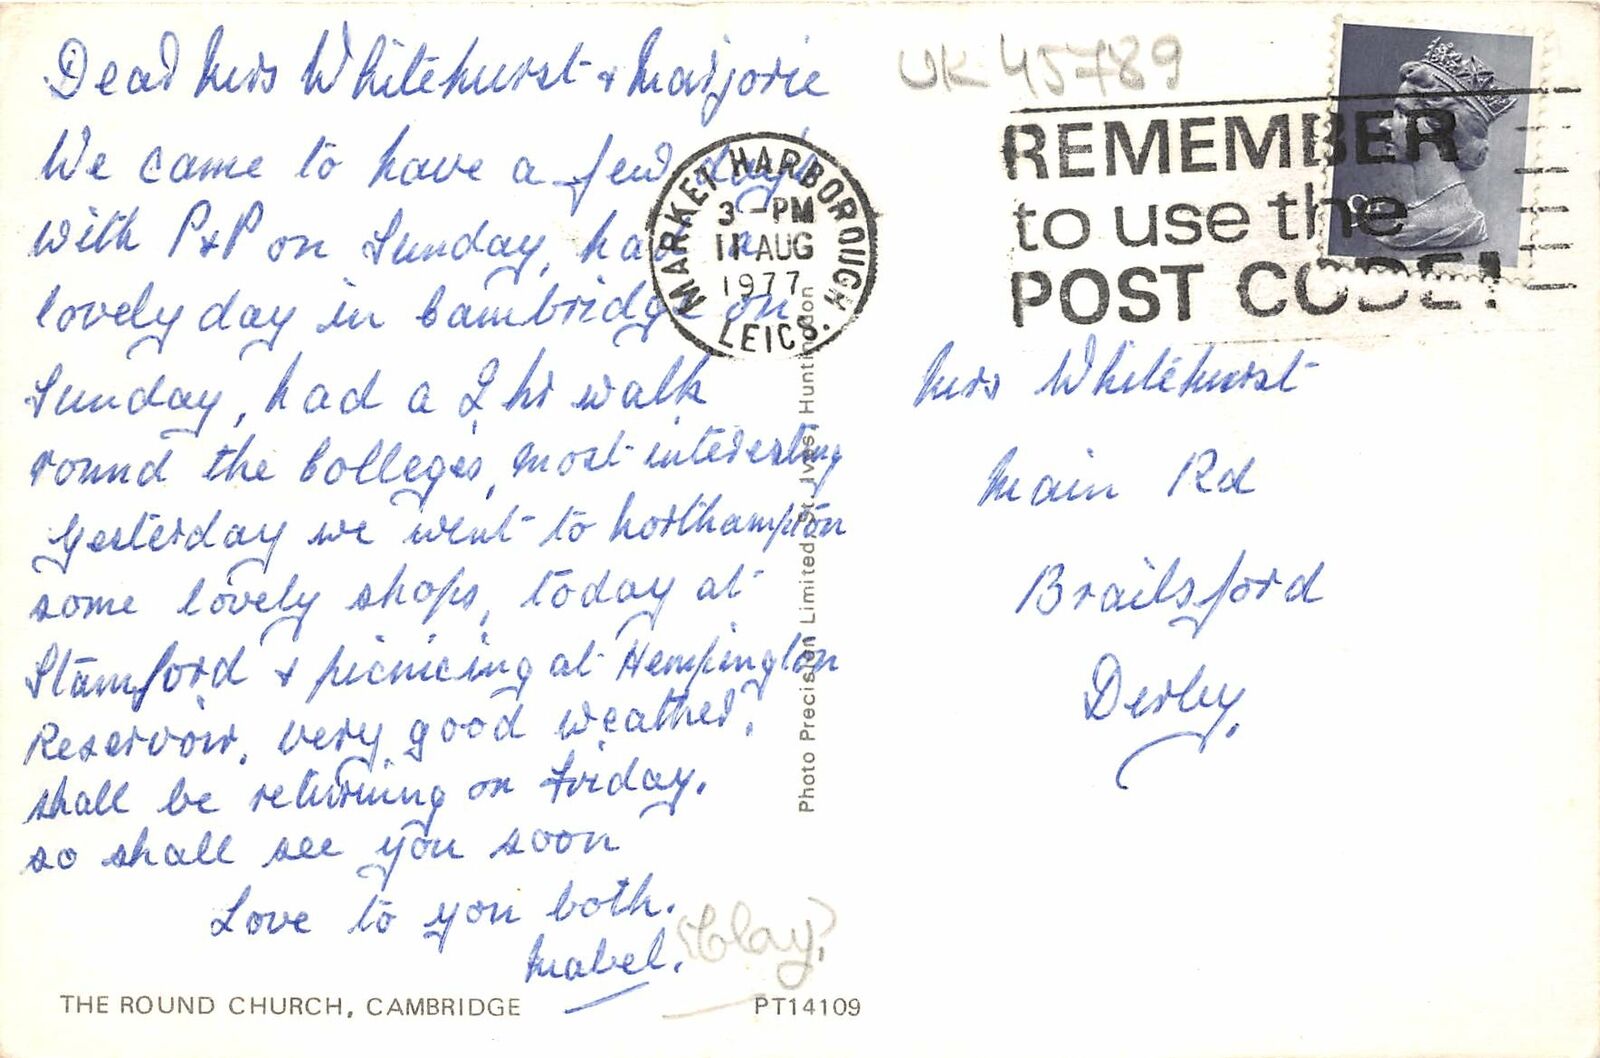 Dear Mrs Whitehurst & Marjorie
We came to have a few days
with P&P on Sunday, had a
lovely day in Cambridge on
Sunday, had a 2 hr walk
round the Colleges, most interesting
Yesterday we went to Northampton
some lovely shops, today at
Stamford & picnicing at Hempington
Reservoir. very good weather,
shall be returning on Friday.
so shall see you soon
Love to you both.
Mabel.
(Clay)
THE ROUND CHURCH, CAMBRIDGE
PT14109
Photo Precision Limited, St. Ives, Huntingdon
MARKET HARBOROUGH
3 - PM
11 AUG
1977
LEICS.
UK 45789
REMEMBER
to use the
POST CODE!
Mrs Whitehurst
Main Rd
Brailsford
Derby.